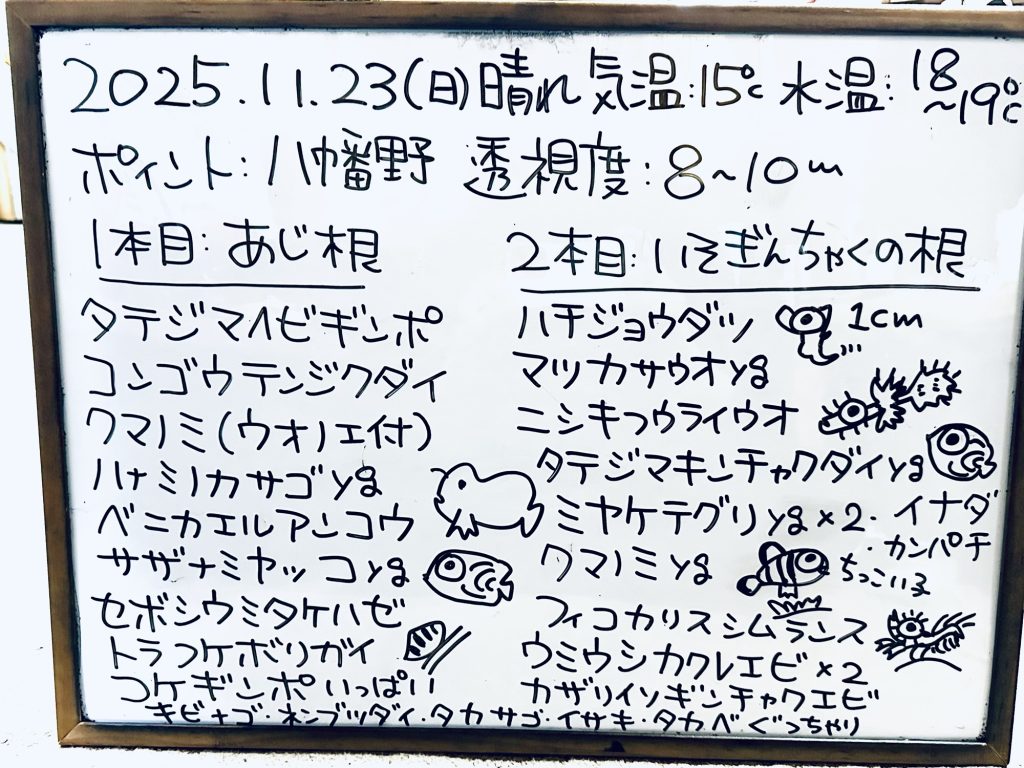 2025.11.23(日)晴れ 気温:15℃ 水温:18~19℃
ポイント:八幡野 透視度:8~10m
1本目:あじ根
タテジマヘビギンポ
コンゴウテンジクダイ
クマノミ(ウオノエ付)
ハナミノカサゴyg
ベニカエルアンコウ
サザナミヤッコyg
セボシウミタケハゼ
トラフケボリガイ
コケギンポいっぱい
2本目:いそぎんちゃくの根
ハチジョウダツ 1cm
マツカサウオyg
ニシキフウライウオ
タテジマキンチャクダイyg
ミヤケテグリyg×2
・イナダ
・カンパチ
クマノミyg ちっこいよ
フィコカリスシムランス
ウミウシカクレエビ×2
カザリイソギンチャクエビ
キビナゴ・ネンブツダイ・タカサゴ・イサキ・タカベぐっちゃり